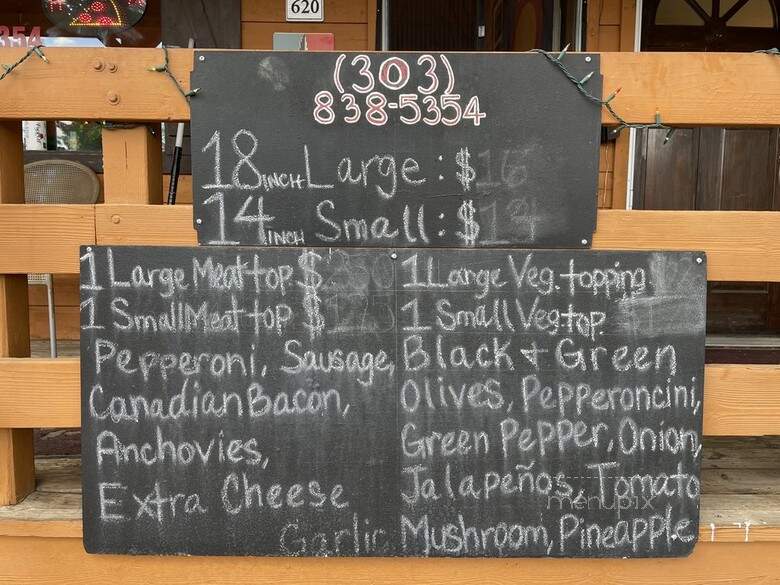 620
354
(303)
838-5354
18 INCH Large: $16
14 INCH Small: $14
1 Large Meat top $
1 Small Meat top $
Pepperoni, Sausage,
Canadian Bacon,
Anchovies,
Extra Cheese
Garlic
1 Large Veg. topping
1 Small Veg top.
Black + Green
Olives, Pepperoncini,
Green Pepper, Onion,
Jalapeños, Tomato
Mushroom, Pineapple
menupix